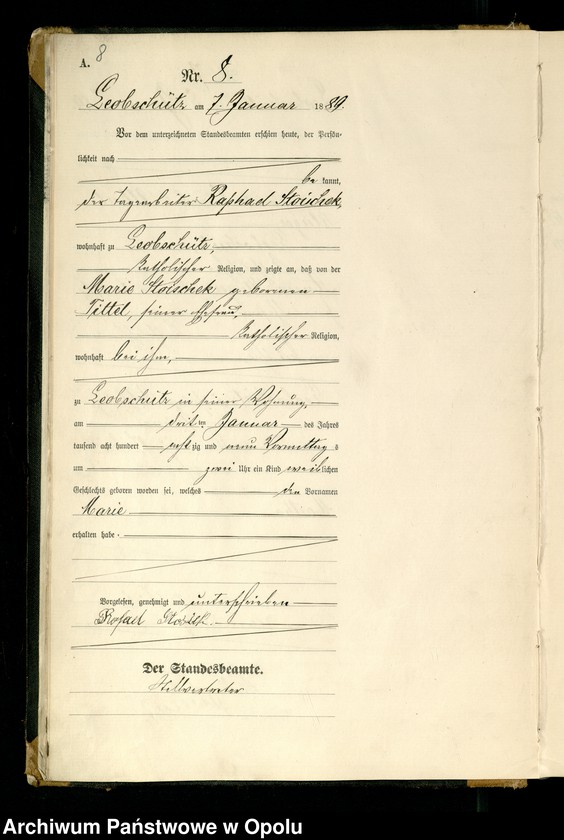 8
A.
Nr. 8.
Leobschütz am 7. Januar 1889.
Vor dem unterzeichneten Standesbeamten erschien heute, der Persön-
lichkeit nach
be kannt,
der Tagearbeiter Raphael Stoischek,
wohnhaft zu Leobschütz,
katholischer Religion, und zeigte an, daß von der
Marie Stoischek geborenen
Tittel, seiner Ehefrau,
katholischer Religion,
wohnhaft bei ihm,
zu Leobschütz in seiner Wohnung,
am dritten Januar des Jahres
tausend acht hundert achtzig und neun Vormittags
um zwei Uhr ein Kind weiblichen
Geschlechts geboren worden sei, welches den Vornamen
Marie
erhalten habe.
Vorgelesen, genehmigt und unterschrieben
Der Standesbeamte.
Stellvertreter
Archiwum Państwowe w Opolu